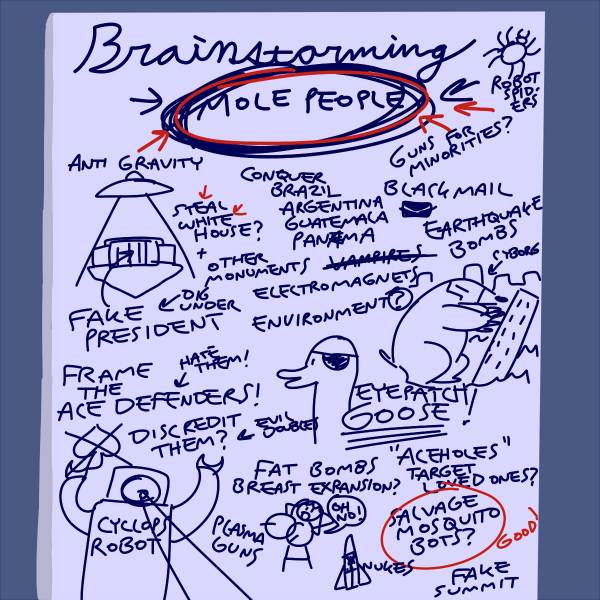 Brainstorming
MOLE PEOPLE
ROBOT
SPID-
ERS
GUNS FOR
MINORITIES?
ANTI GRAVITY
CONQUER
BRAZIL
ARGENTINA
GUATEMALA
PANAMA
BLACKMAIL
STEAL
WHITE
HOUSE?
+
OTHER
MONUMENTS
VAMPIRES
EARTHQUAKE
BOMBS
CYBORG
ELECTROMAGNETS
ENVIRONMENT?
DIG
UNDER
FAKE
PRESIDENT
FRAME
THE
ACE DEFENDERS!
HATE
THEM!
DISCREDIT
THEM?
EVIL
DOUBLES
EYEPATCH
GOOSE!
"ACEHOLES"
TARGET
LOVED ONES?
FAT BOMBS
BREAST EXPANSION?
OH
NO!
SALVAGE
MOSQUITO
BOTS?
GOOD!
CYCLOPS
ROBOT
PLASMA
GUNS
NUKES
FAKE
SUMMIT